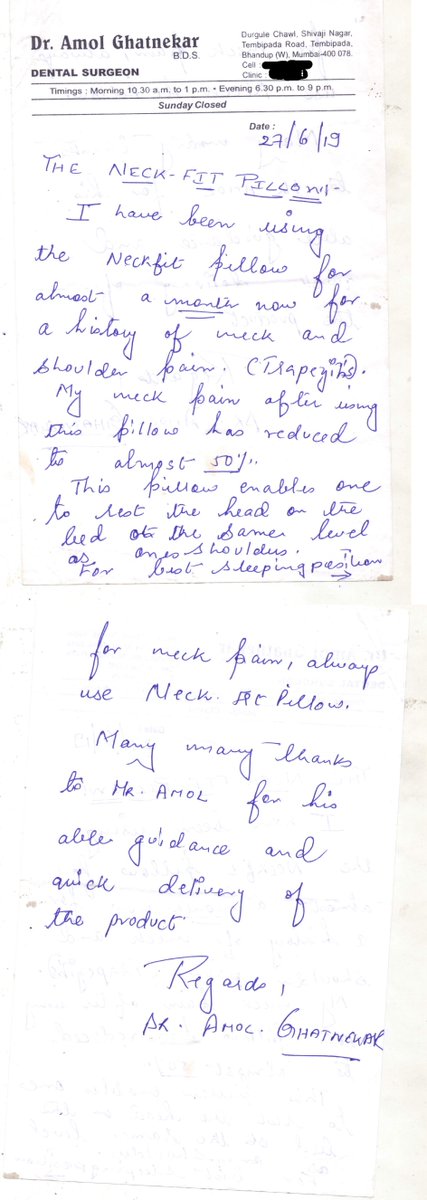 Dr. Amol Ghatnekar
B.D.S.
DENTAL SURGEON
Durgule Chawl, Shivaji Nagar,
Tembipada Road, Tembipada,
Bhandup (W), Mumbai-400 078.
Cell :
Clinic :
Timings : Morning 10.30 a.m. to 1 p.m. • Evening 6.30 p.m. to 9 p.m.
Sunday Closed
Date : 27/6/19
THE NECK-FIT PILLOW:-
I have been using
the Neckfit pillow for
almost a month now for
a history of neck and
shoulder pain. (Trapezitis).
My neck pain after using
this pillow has reduced
to almost 50%.
This pillow enables one
to rest the head on the
bed at the same level
as ones shoulders.
For best sleeping position
for neck pain, always
use Neck fit Pillow.
Many many thanks
to MR. AMOL for his
able guidance and
quick delivery of
the product.
Regards,
DR. AMOL. GHATNEKAR